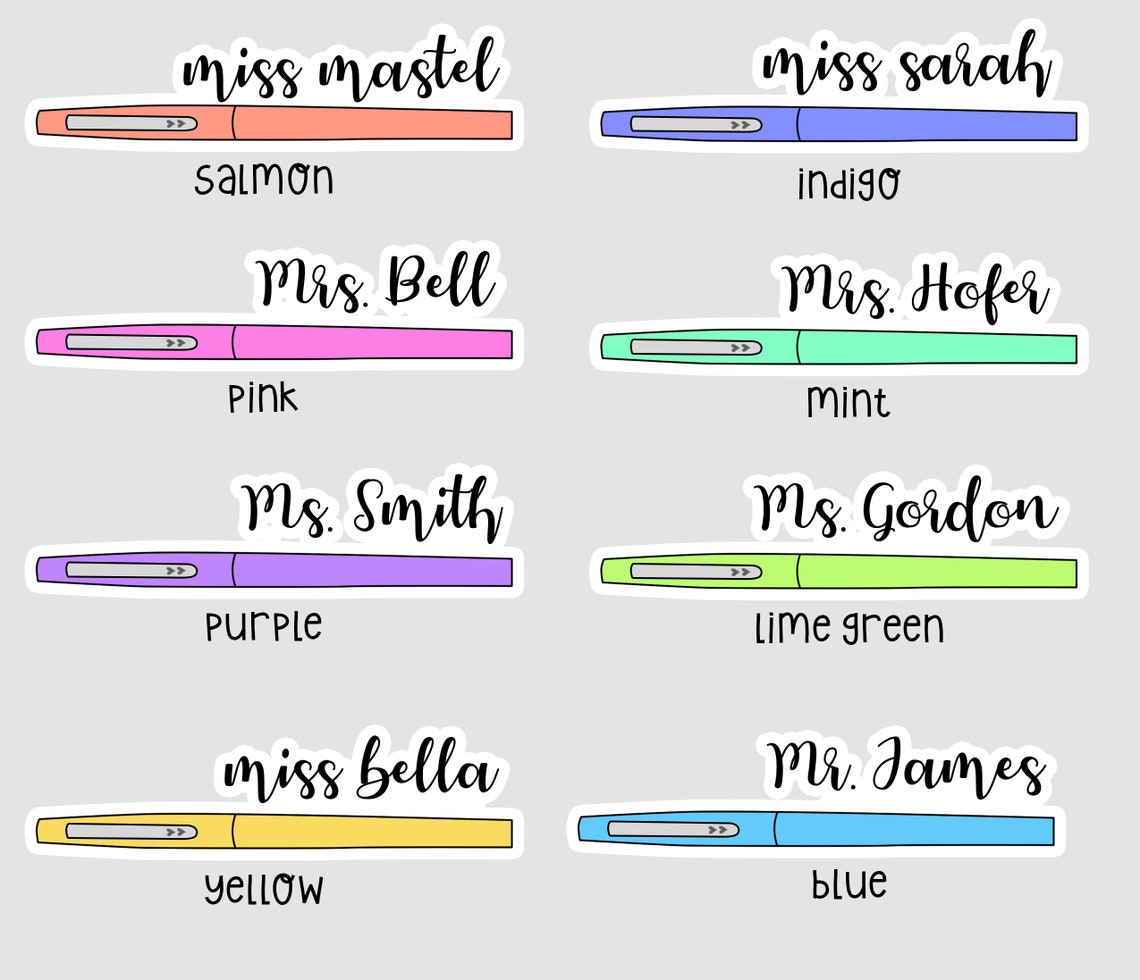 miss mastel
salmon
miss sarah
indigo
Mrs. Bell
pink
Mrs. Hofer
mint
Ms. Smith
purple
Ms. Gordon
lime green
miss bella
yellow
Mr. James
blue